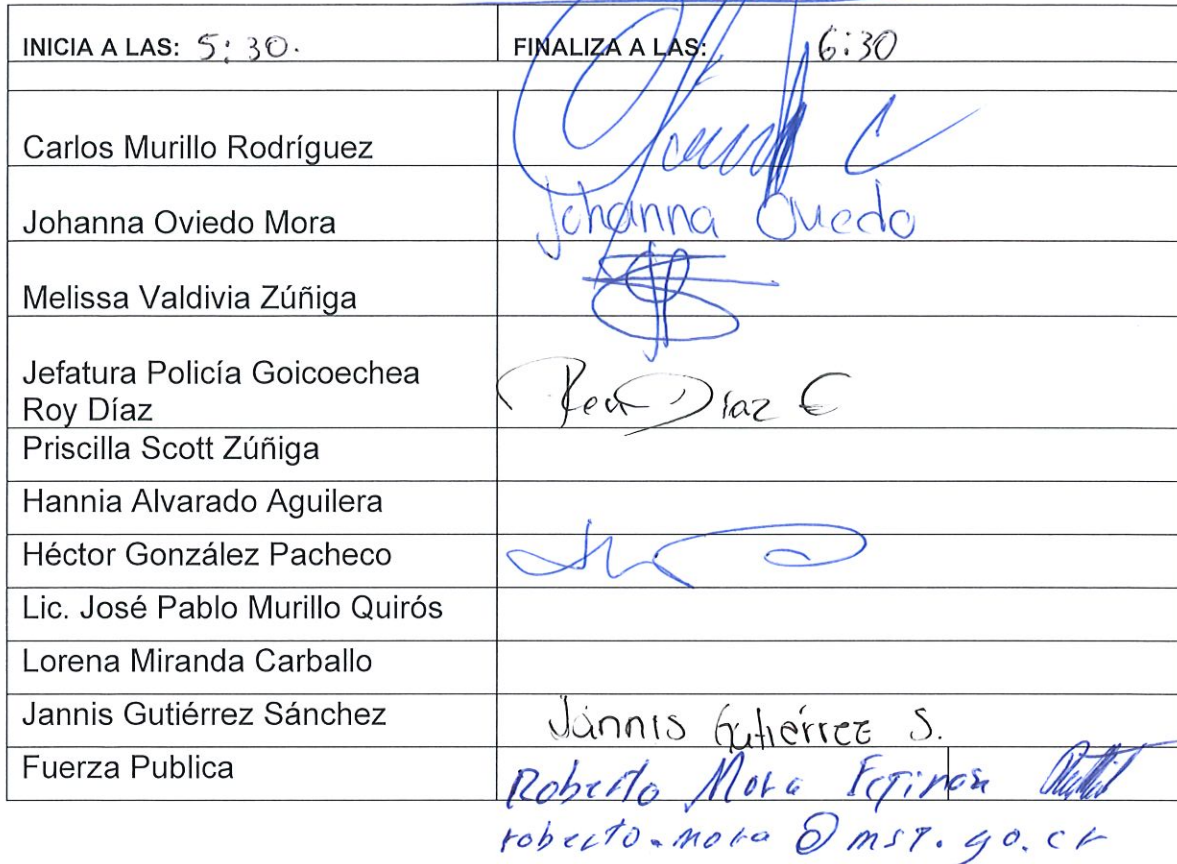 INICIA A LAS: 5:30. FINALIZA A LAS: 6:30
Carlos Murillo Rodríguez
Johanna Oviedo Mora Johanna Oviedo
Melissa Valdivia Zúñiga
Jefatura Policía Goicoechea
Roy Díaz Díaz
Priscilla Scott Zúñiga
Hannia Alvarado Aguilera
Héctor González Pacheco
Lic. José Pablo Murillo Quirós
Lorena Miranda Carballo
Jannis Gutiérrez Sánchez Jannis Gutiérrez S.
Fuerza Publica Roberto Mora